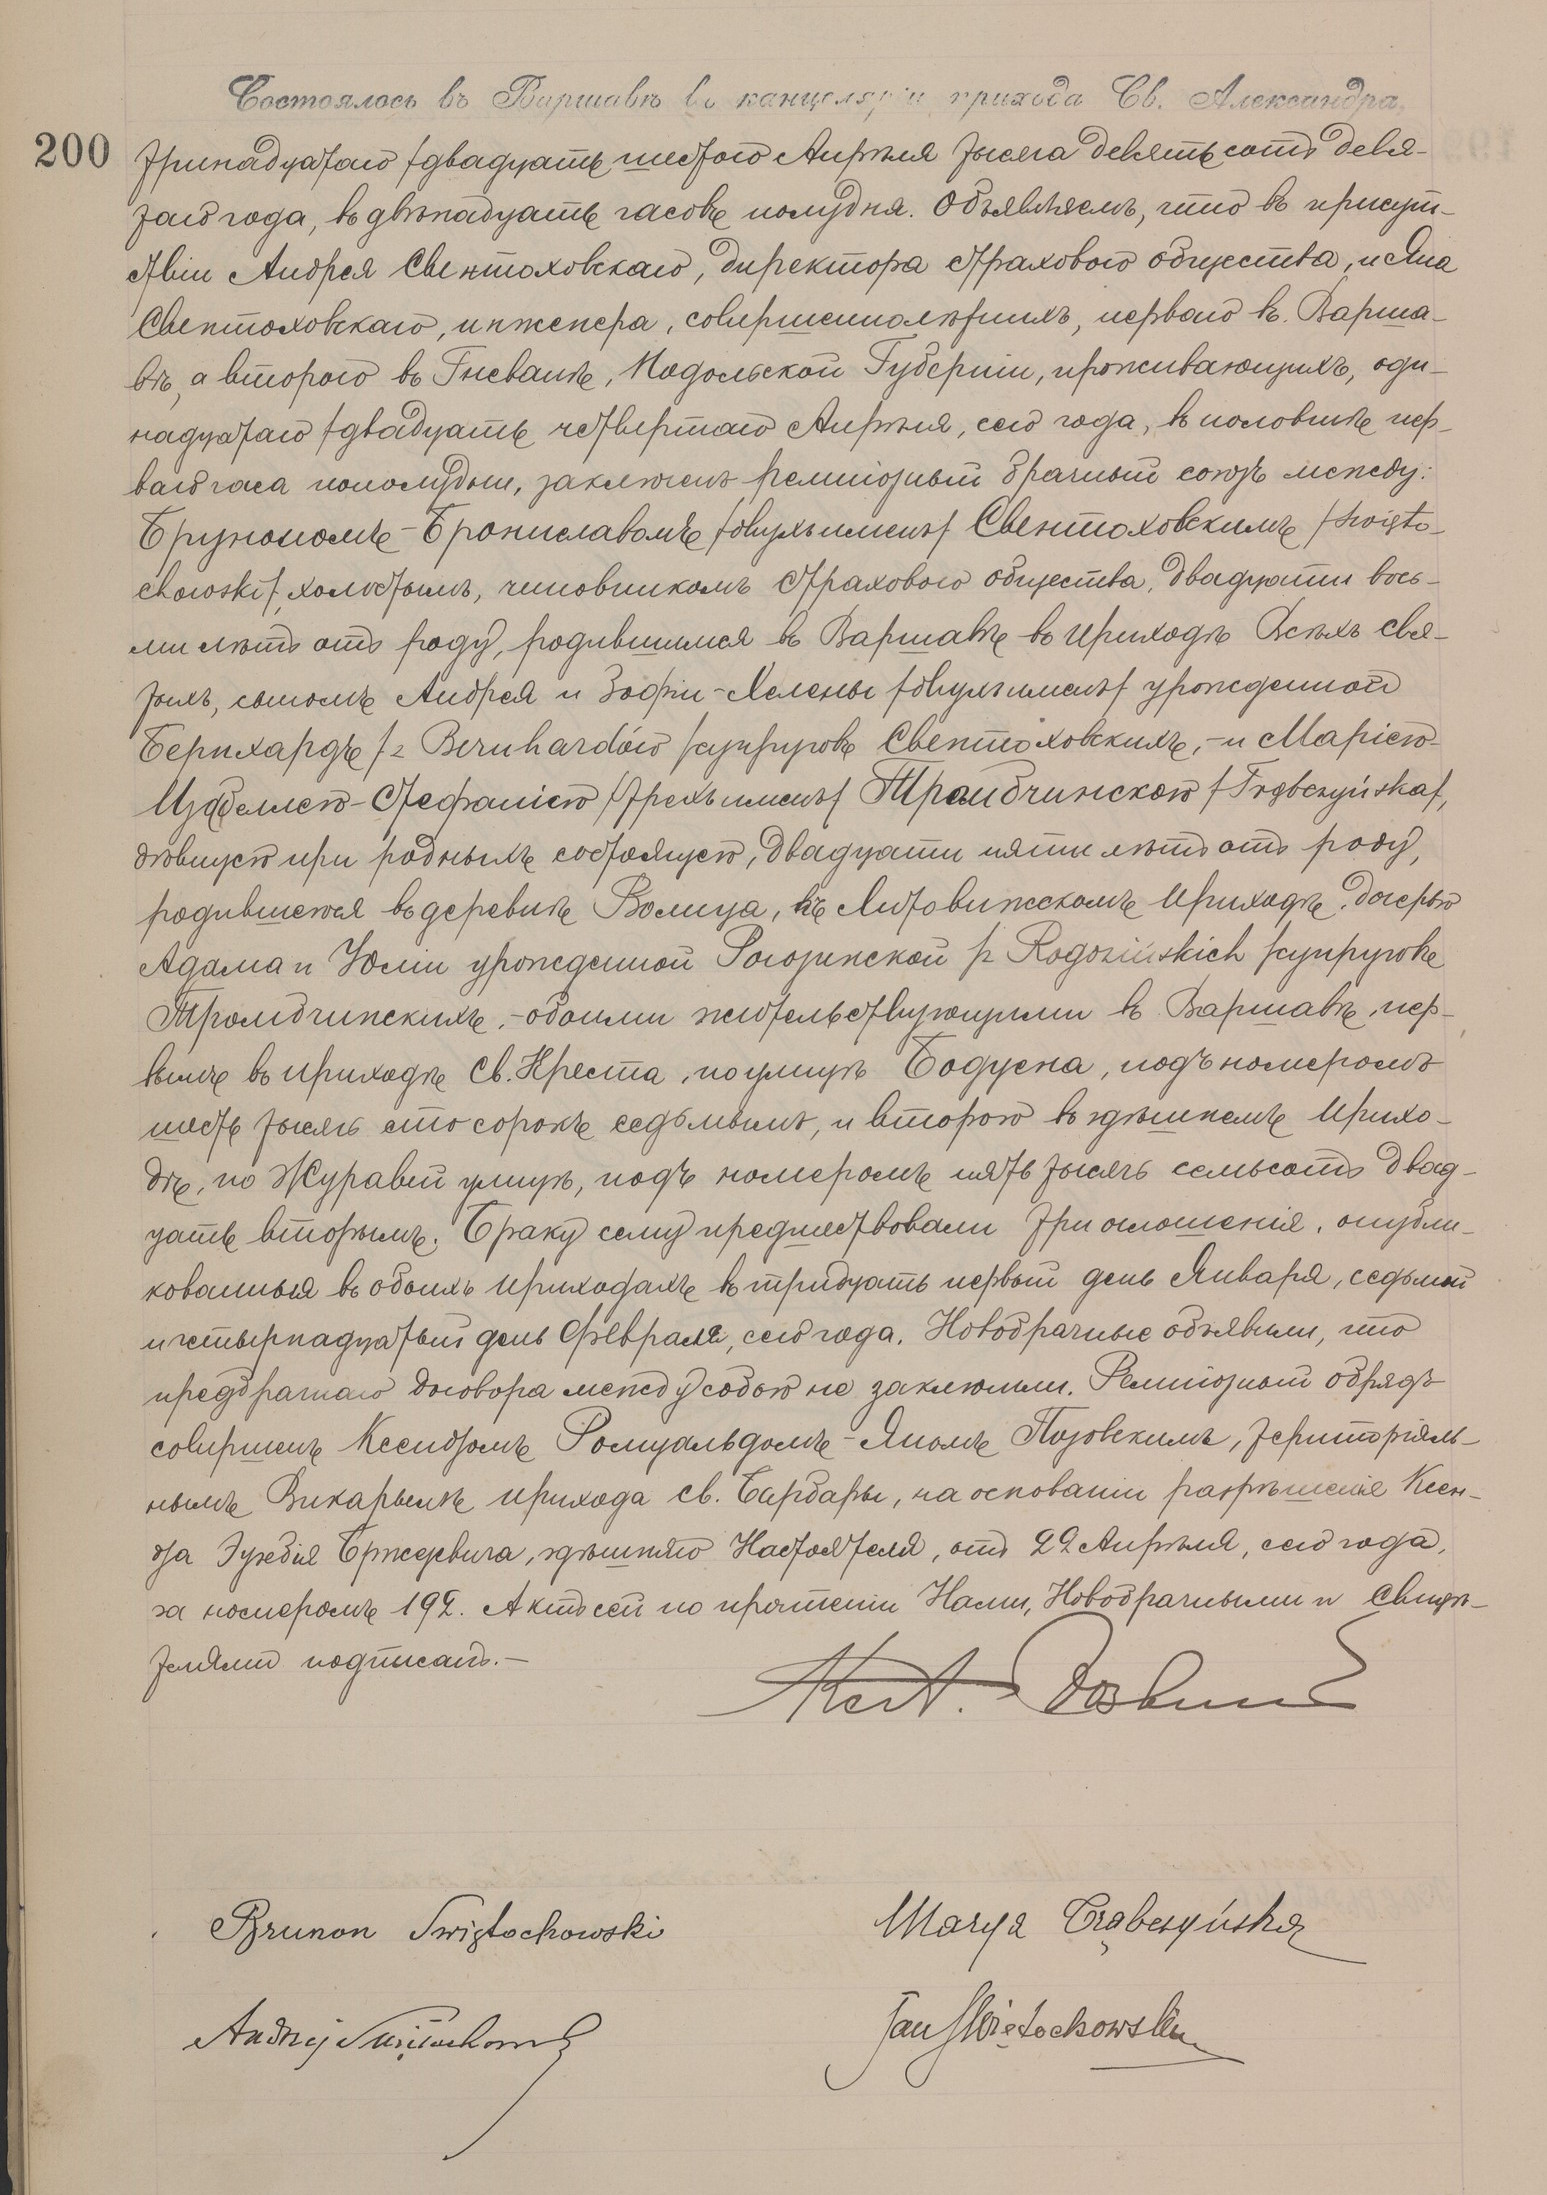 Состоялось въ Варшавѣ въ канцеляріи прихода Св. Александра
200
тринадцатаго /двадцать шестого Апрѣля тысяча девятьсотъ девя-
таго года, въ двѣнадцать часовъ полудня. Объявляемъ, что въ присут-
ствіи Андрея Свентоховскаго, директора страхового общества, и Яна
Свентоховскаго, инженера, совершеннолѣтнихъ, перваго въ Варша-
вѣ, а второго въ Гневанѣ, Подольской Губерніи, проживающихъ, оди-
надцатаго /двадцать четвертаго Апрѣля, сего года, въ половинѣ пер-
ваго часа пополудни, заключенъ религіозный брачный союзъ между:
Бруномомъ-Брониславомъ /двухъ именъ/ Свентоховскимъ /Swięto-
chowski/, холостымъ, чиновникомъ страхового общества, двадцати вось-
ми лѣтъ отъ роду, родившимся въ Варшавѣ въ приходѣ Всѣхъ Свя-
тыхъ, сыномъ Андрея и Зофіи-Хелены /двухъ именъ/ урожденной
Бернхардъ /z Bernhardów/ супруговъ Свентоховскихъ, - и Маріею-
Изабеллею-Стефаніею /трехъ именъ/ Тромбчинскою /Trąbczyńska/,
дѣвицею при родныхъ состоящею, двадцати пяти лѣтъ отъ роду,
родившеюся въ деревнѣ Волица, въ Литовижскомъ приходѣ, дочерью
Адама и Юліи урожденной Рогозинской /z Rogozińskich/ супруговъ
Тромбчинскихъ, - обоими жительствующими въ Варшавѣ, пер-
вымъ въ приходѣ Св. Креста, по улицѣ Бодуэна, подъ номеромъ
шесть тысячъ сто сорокъ седьмымъ, и второю въ здѣшнемъ прихо-
дѣ, по Журавей улицѣ, подъ номеромъ пять тысячъ семьсотъ двад-
цать вторымъ. Браку сему предшествовали три оглашенія, опубли-
кованныя въ обоихъ приходахъ въ тридцать первый день Января, седьмой
и четырнадцатый день Февраля, сего года. Новобрачные объявили, что
предбрачнаго договора между собою не заключили. Религіозный обрядъ
совершенъ Ксендзомъ Ромуальдомъ-Яномъ Позовскимъ, территоріяль-
нымъ Викарымъ прихода св. Барбары, на основаніи разрѣшенія Ксен-
дза Эузебія Бржезевича, здѣшняго Настоятеля, отъ 22 Апрѣля, сего года,
за номеромъ 192. Актъ сей по прочтеніи Нами, Новобрачными и Свидѣ-
телями подписанъ.-
Brunon Swiętochowski
Marya Trąbczyńska
Andrzej Swiętochowski
Jan Swiętochowski